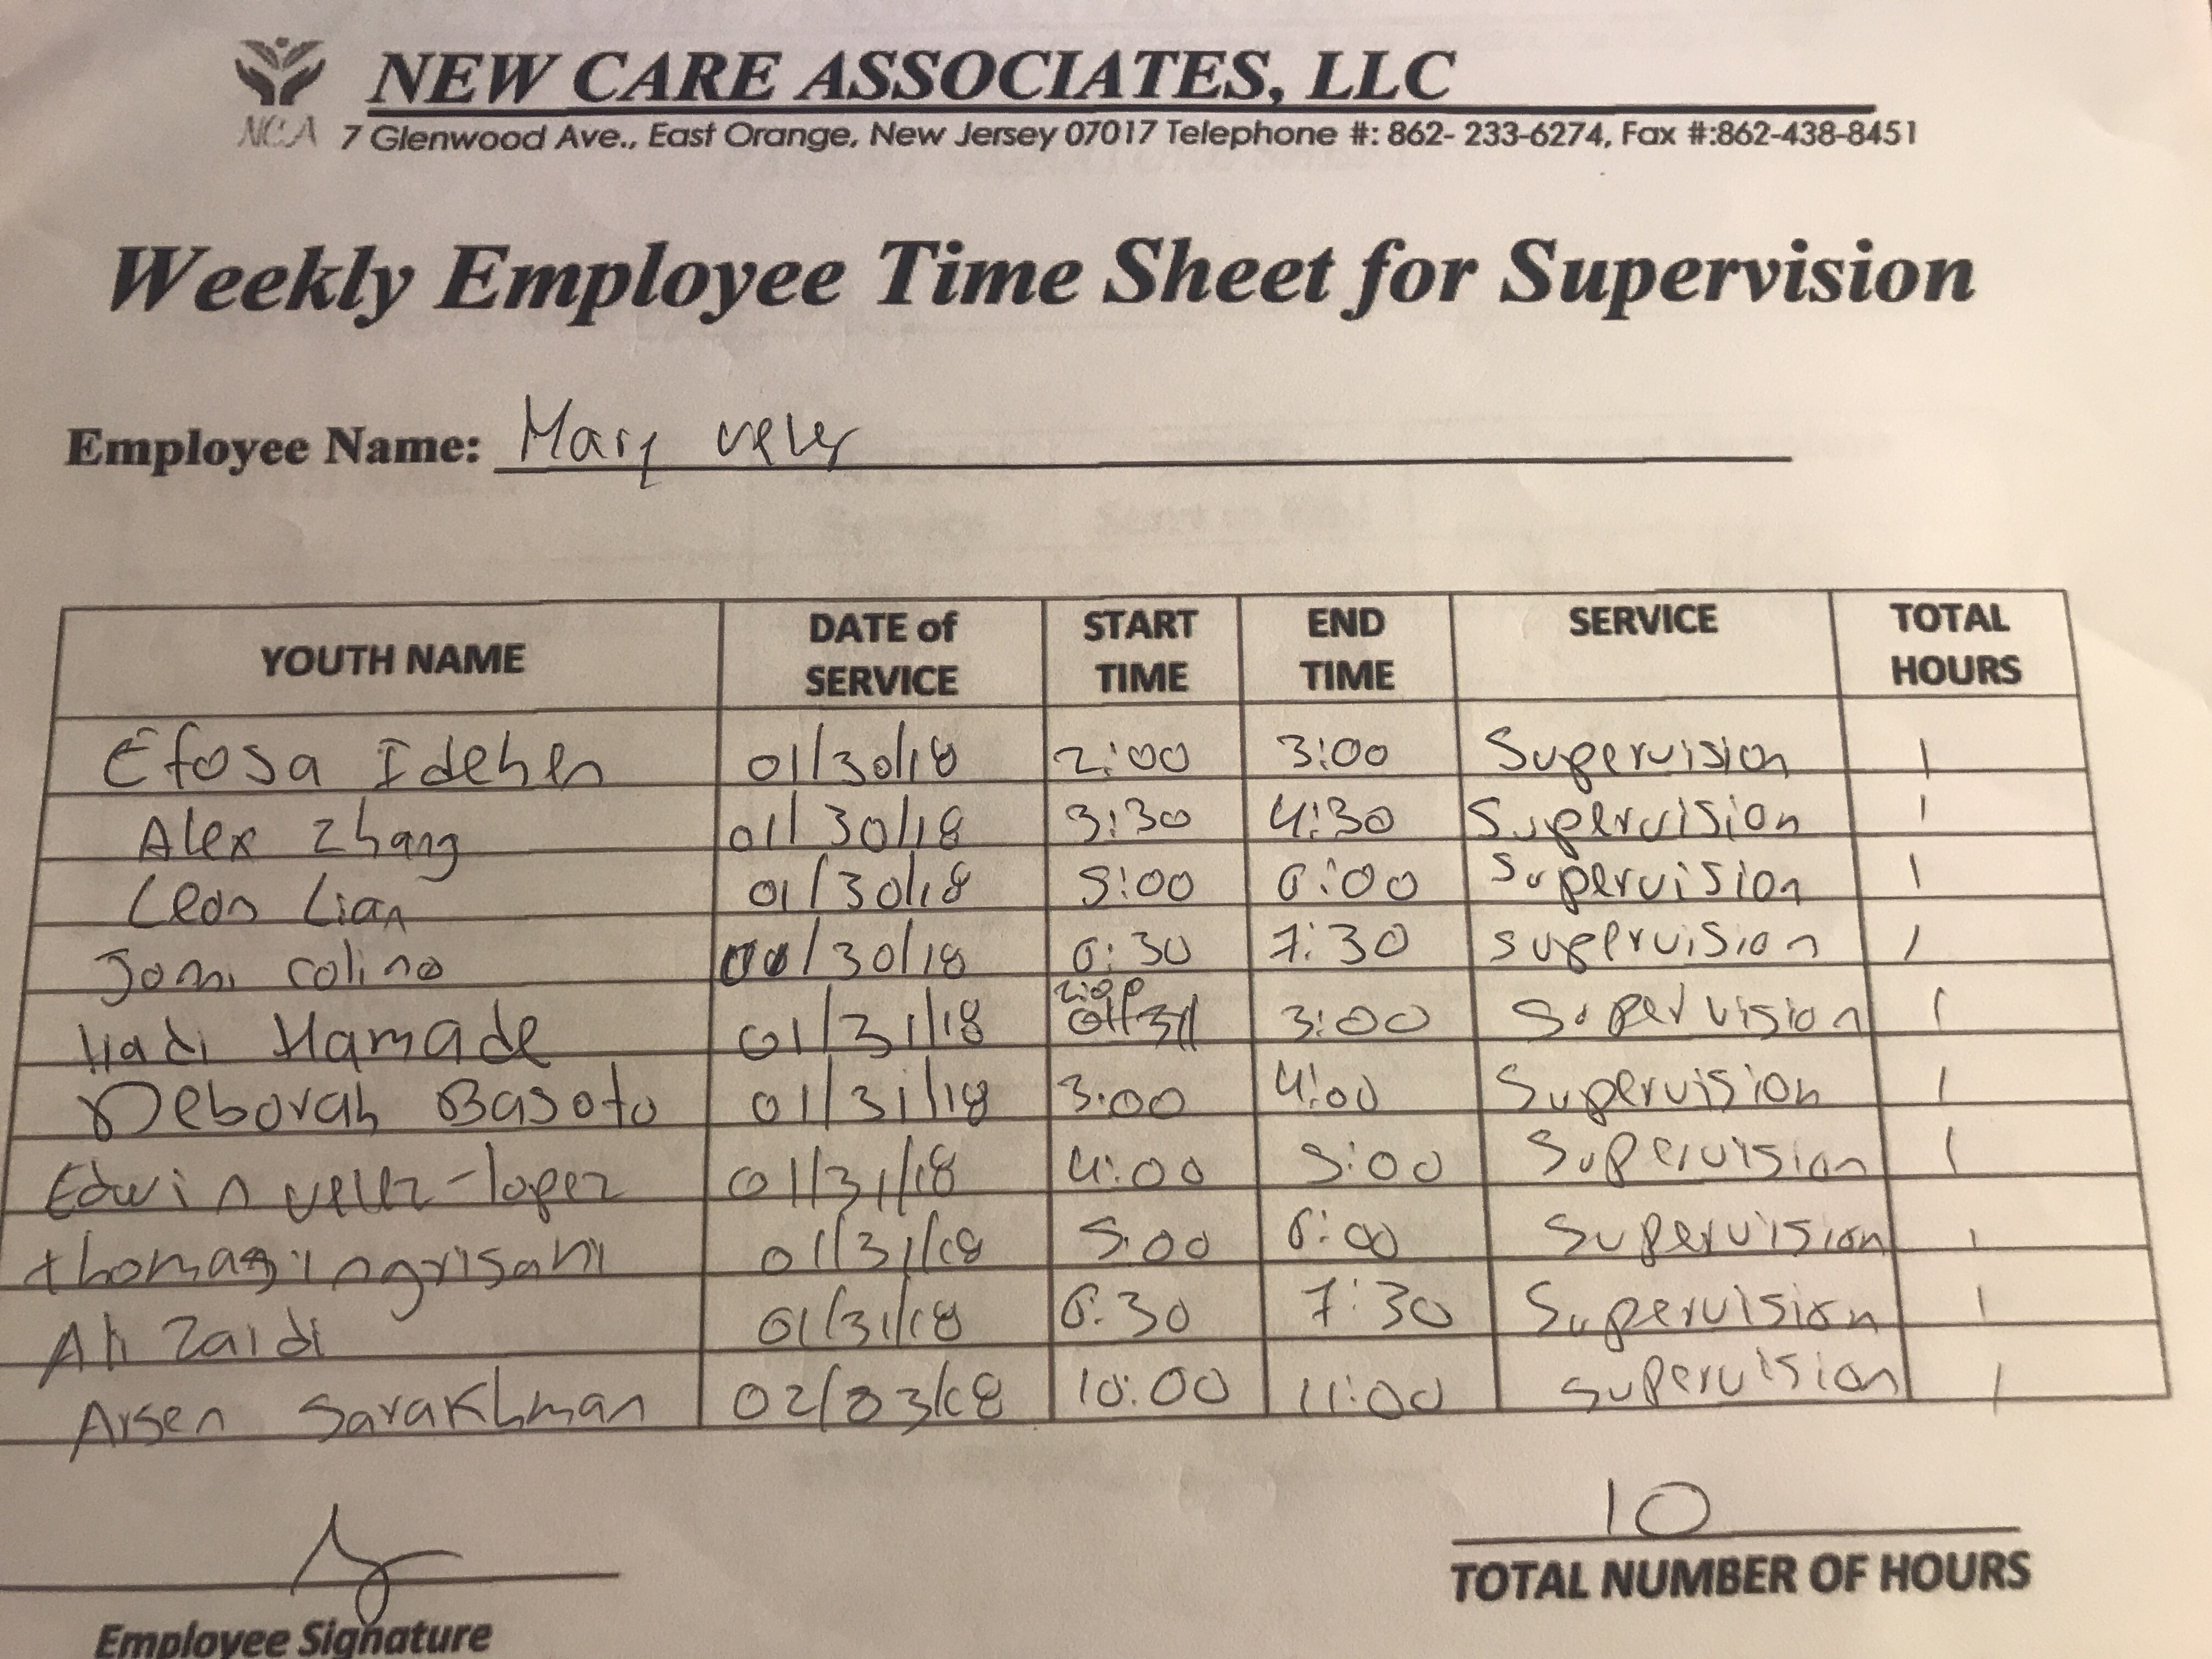 NEW CARE ASSOCIATES, LLC
NCA 7 Glenwood Ave., East Orange, New Jersey 07017 Telephone #: 862- 233-6274, Fax #:862-438-8451
Weekly Employee Time Sheet for Supervision
Employee Name: Mary velez
YOUTH NAME DATE of SERVICE START TIME END TIME SERVICE TOTAL HOURS
Efosa Idehen 01/30/18 2:00 3:00 Supervision 1
Alex Zhang 01/30/18 3:30 4:30 Supervision 1
Leon Lian 01/30/18 5:00 6:00 Supervision 1
Jomi colino /30/18 6:30 7:30 supervision 1
Hadi Hamade 01/31/18 2:00 3:00 Supervision 1
Deborah Basoto 01/31/18 3:00 4:00 Supervision 1
Edwin velez-lopez 01/31/18 4:00 5:00 Supervision 1
thomas ingrisani 01/31/18 5:00 6:00 Supervision 1
Ali Zaidi 01/31/18 6:30 7:30 Supervision 1
Arsen Sarakhman 02/03/18 10:00 11:00 supervision 1
10
TOTAL NUMBER OF HOURS
Employee Signature